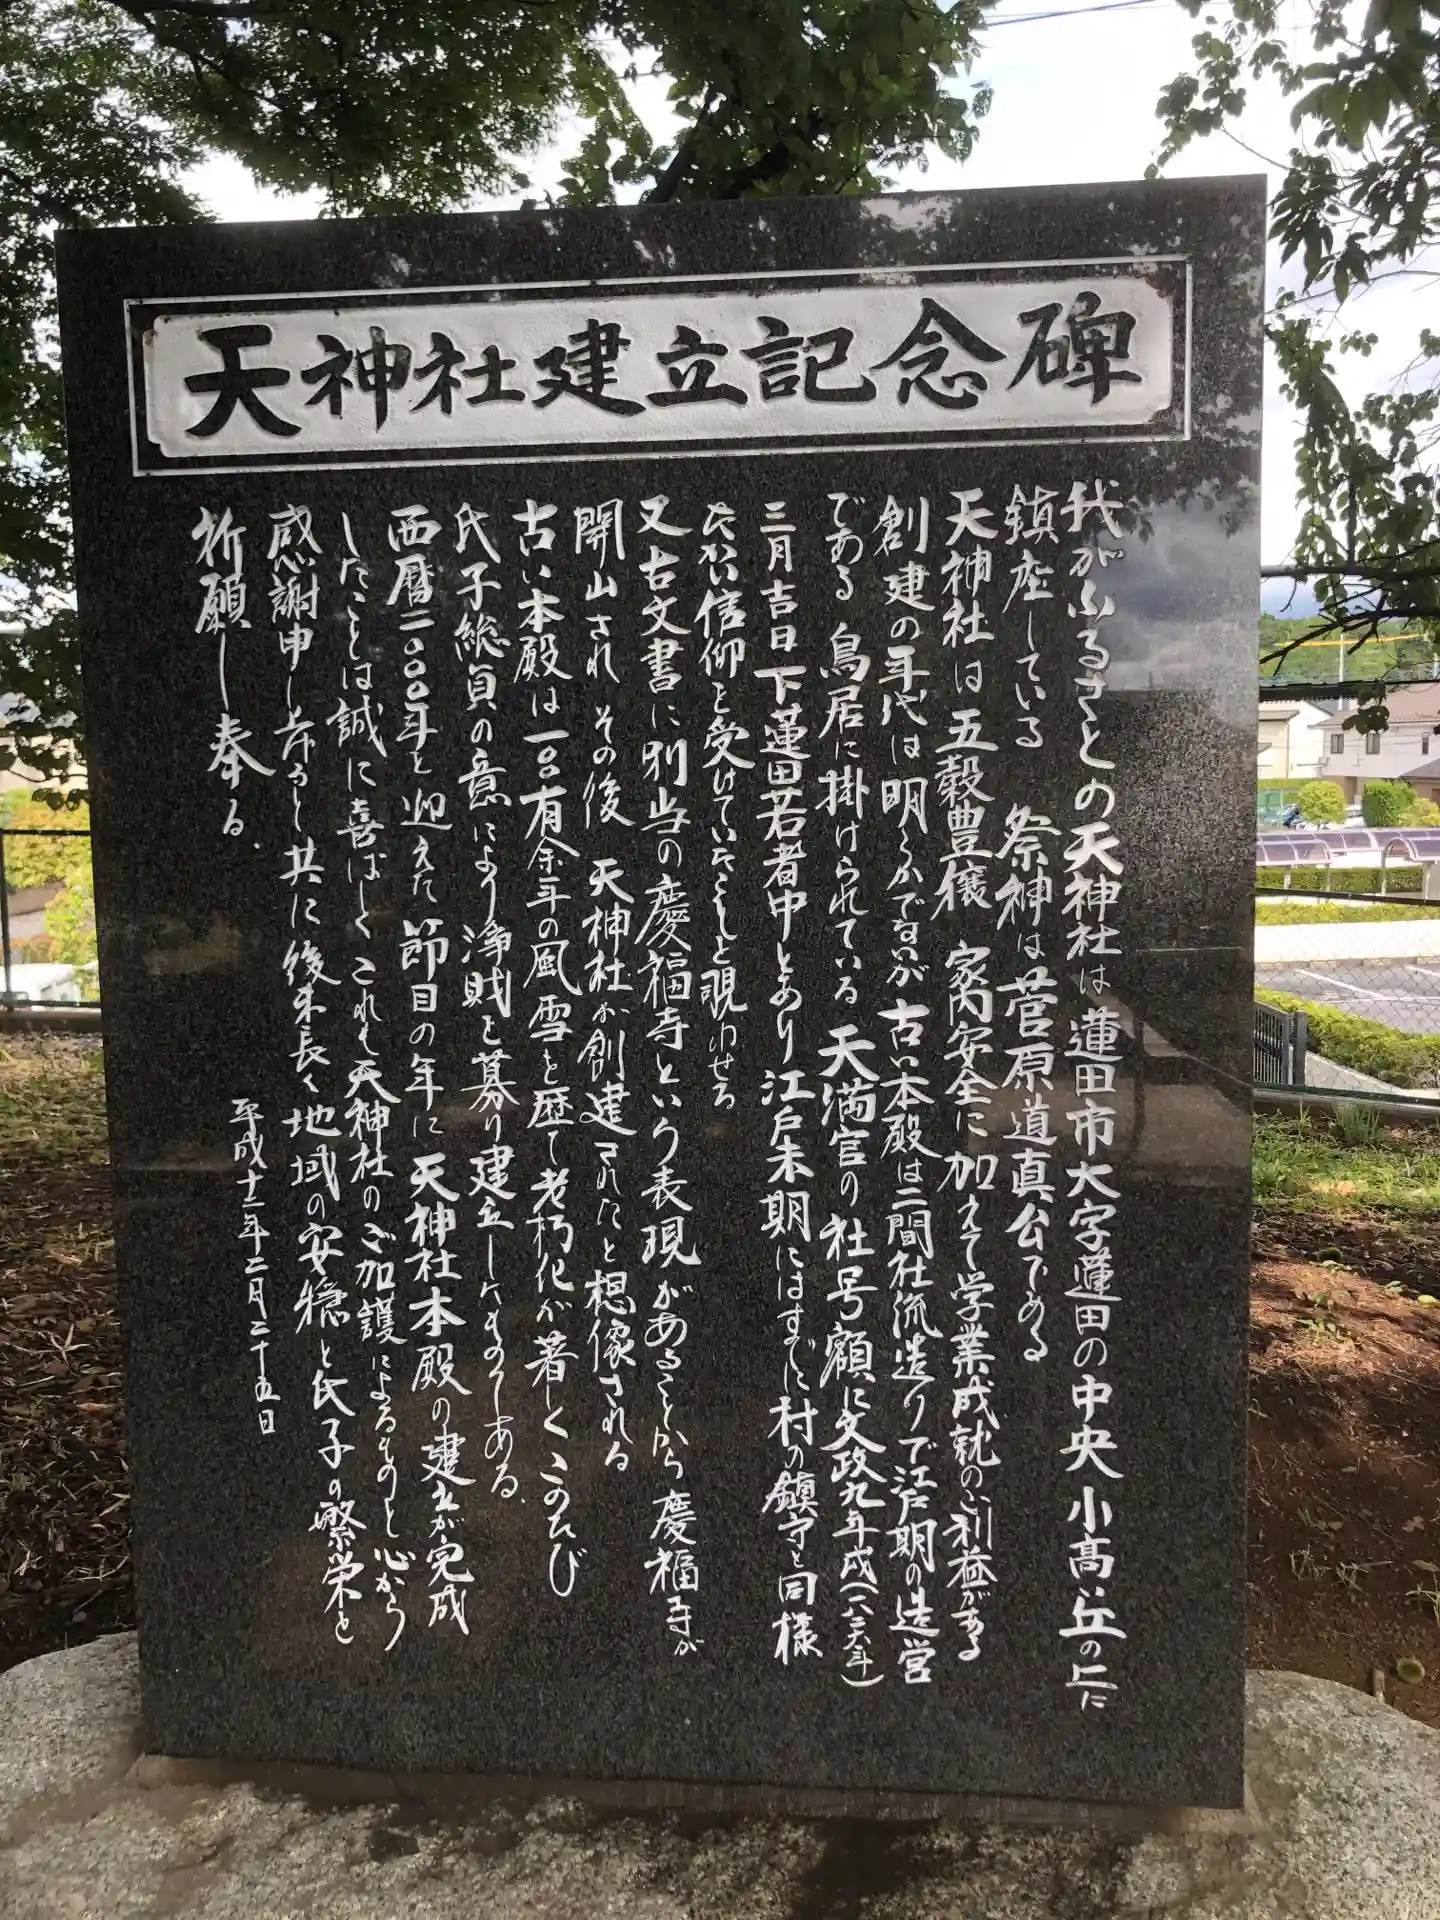 天神社建立記念碑
我がふるさとの天神社は蓮田市大字蓮田の中央小高い丘の上に
鎮座している 祭神は菅原道真公である
天神社は五穀豊穣 家内安全に加えて学業成就のご利益がある
創建の年代は明らかでないが古い本殿は二間社流造りで江戸期の造営
である 鳥居に掛けられている天満宮の社号額に文政九年戌(一八二六年)
二月吉日下蓮田若者中とあり江戸末期にはすでに村の鎮守と同様
たかい信仰を受けていたことを覗わせる
又古文書に別当の慶福寺という表現があることから慶福寺が
開山され その後 天神社が創建されたと想像される
古い本殿は一八〇有余年の風雪を歴て老朽化が著しくこのたび
氏子総員の意により浄財を募り建立したものである.
西暦二〇〇〇年を迎えた節目の年に天神社本殿の建立が完成
したことは誠に喜ばしくこれも天神社のご加護によるものと心から
感謝申し上ると共に後末長く地域の安穏と氏子の繁栄を
祈願し奉る.
平成十二年二月二十五日